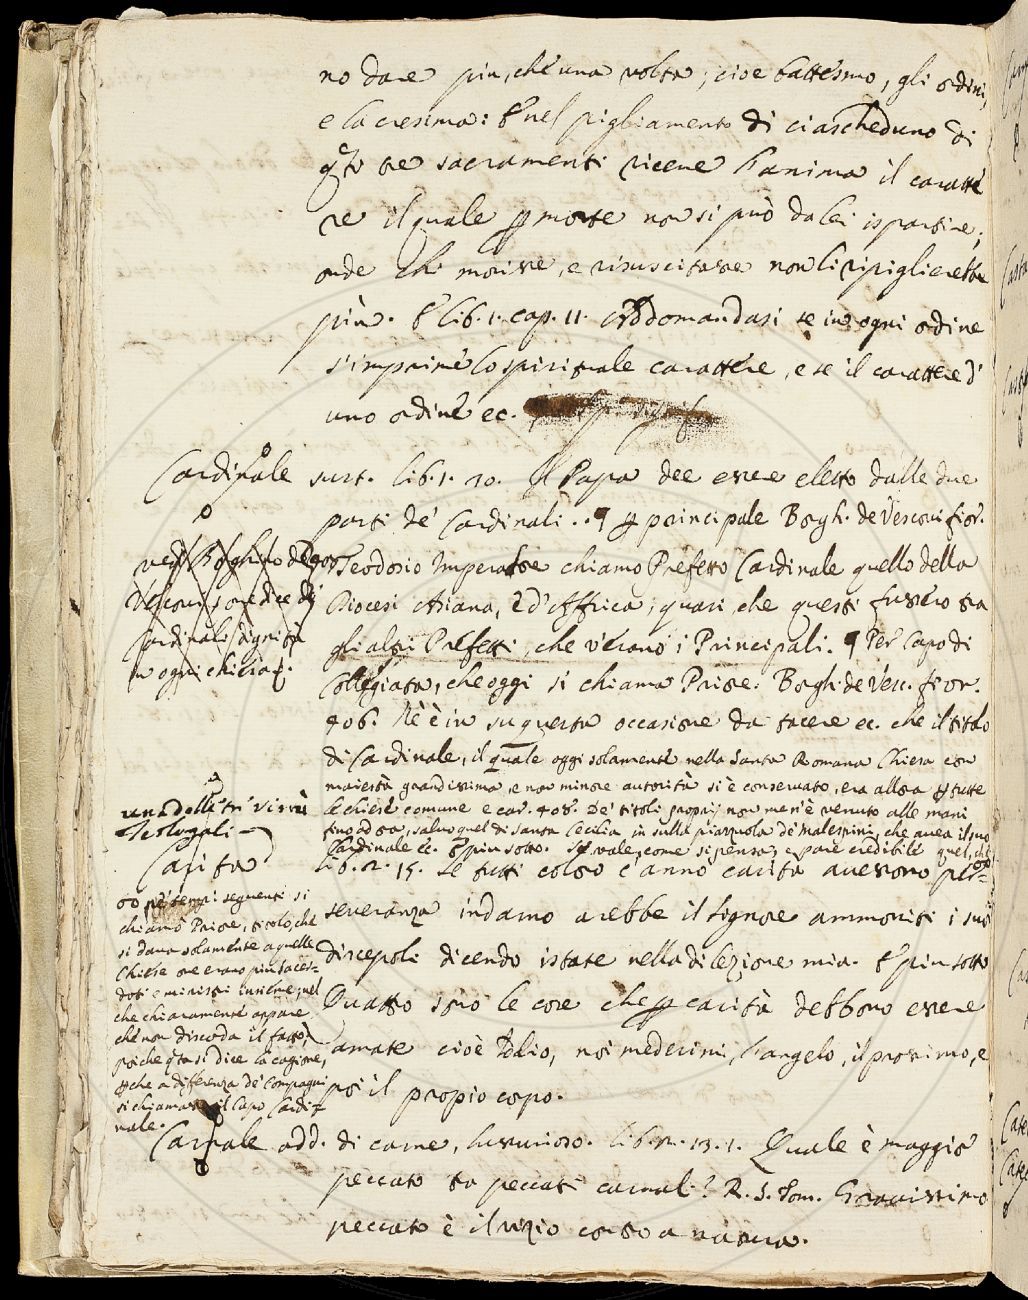 no dare piu, che una volta; cioe battesmo, gli ordini,
e la cresima: E nel pigliamento di ciascheduno di
qti tre sacramenti riceve l'anima il caratte
re il quale p morte non si può da lei ispartire;
onde chi morisse, e risuscitasse non li ripiglierebbe
più. E lib. 1. cap. 11. Addomandasi se in ogni ordine
s'imprime lo spirituale carattere, e se il carattere d'
uno ordine ec.
Cardinale sust. lib. 1. 20. Il Papa dee essere eletto dalle due
parti de' Cardinali. . ¶ p principale Borgh. de Vescovi fior.
Teodosio Imperatore chiamo Prefetto Cardinale quello della
Diocesi Asiana, e d'Affrica; quasi, che questi fussero tra
gli altri Prefetti, che v'erano i Principali. ¶ Per Capo di
Collegiata, che oggi si chiama Priore. Borgh. de Vesc. fior.
406. Nè è in su questa occasione da tacere ec. che il titolo
di Cardinale, il quale oggi solamente nella Santa Romana Chiesa con
maiestà grandissima, e non minore autorità si è conservato, era allora p tutte
le chiese comune e car. 408. De' titoli proprj non men'è venuto alle mani
fino ad ora, salvo quel di Santa Cecilia in sulla piazzuola de' Malespini, che avea il suo
Cardinale ec. E piu sotto. Il quale, come si pensa, e pare credibile quel, che
vedi Borghino de'
Vescovi ove dice di
Cardinali dignità
in ogni chiesa
una delle tre virtù
Teologali
Carita lib. 2. 15. Se tutti coloro c'anno carità avessono per-
severanza indarno arebbe il Signore ammoniti i suoi
discepoli dicendo istate nella dilezione mia. E piu sotto
Quatto sono le cose che p carità debbono essere
amate cioè Iddio, noi medesimi, l'angelo, il prossimo, e
poi il propio corpo.
ne' tempi seguenti si
chiamò Priore, titolo, che
si dava solamente a quelle
Chiese ove erano piu sacer-
doti e ministri insieme; nel
che chiaramente appare
che non discorda il fatto,
poiche qta si dice la cagione,
pche a differenza de' compagni
si chiamasse il Capo Cardi-
nale.
Carnale add. di carne, lussurioso. lib. 2. 13. 1. Quale è maggior
peccato tra peccati carnali? R. S. Tom. Gravissimo
peccato è il vizio contro a natura.